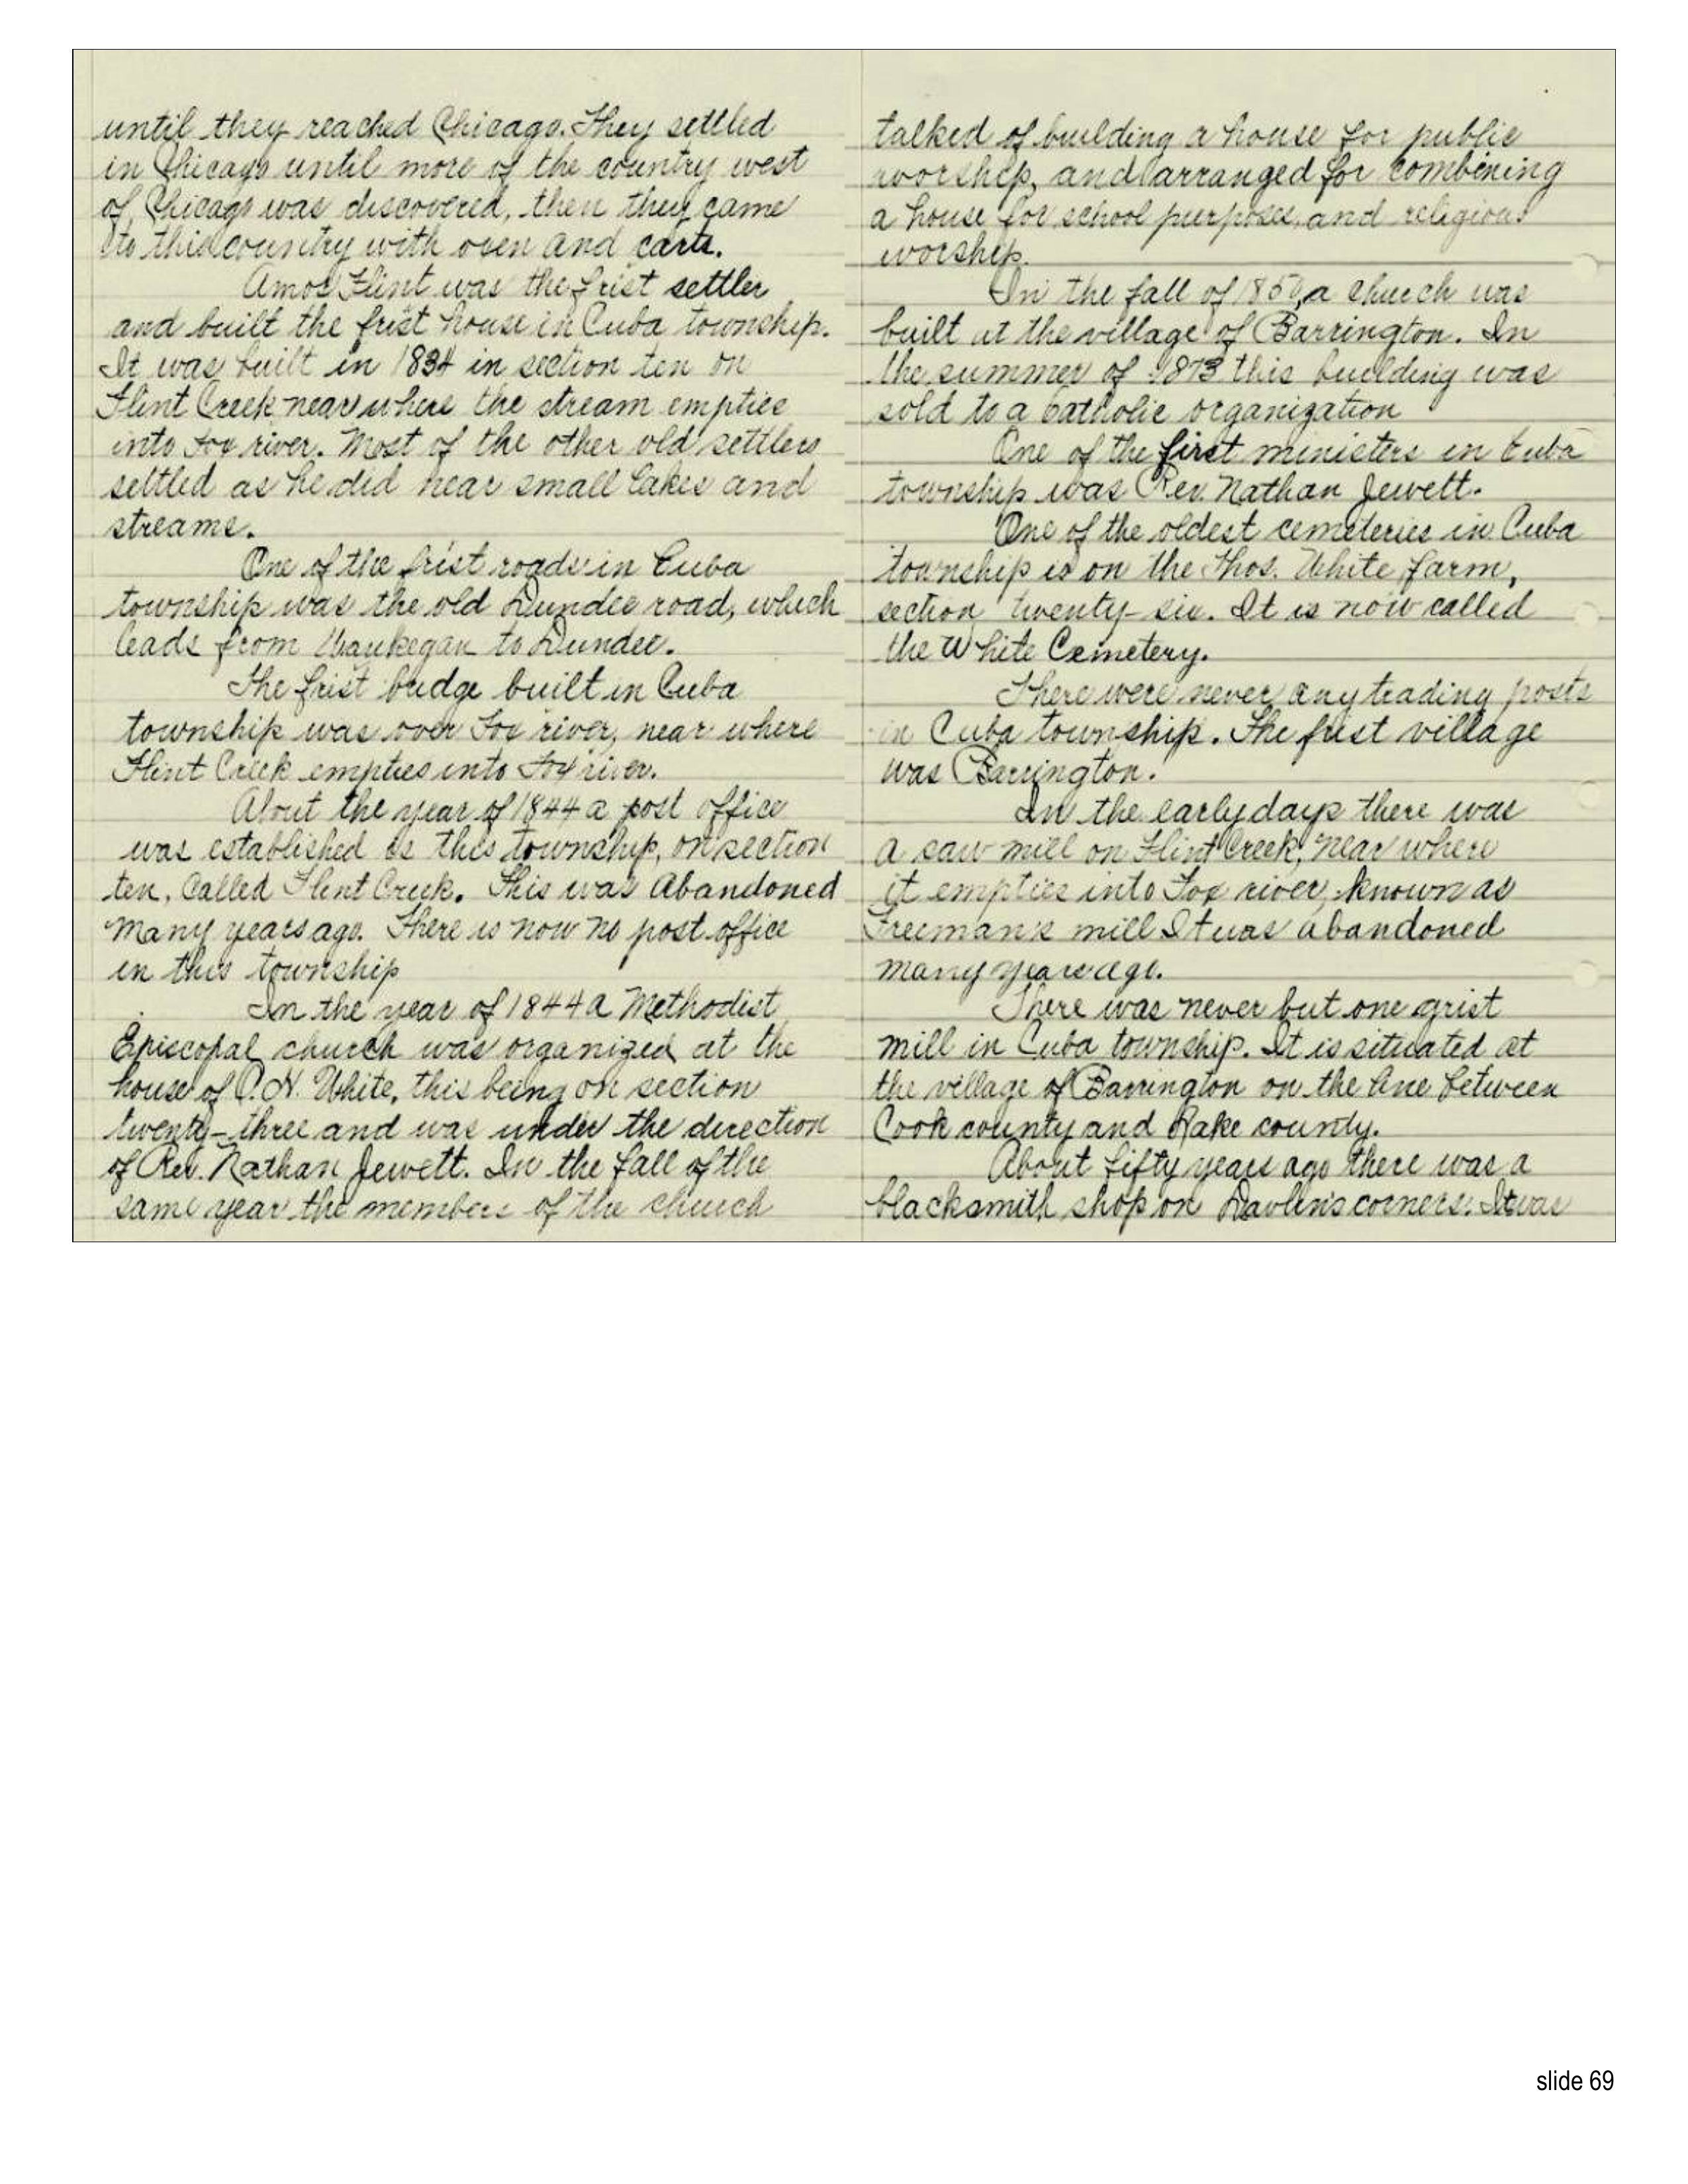 until they reached Chicago. They settled
in Chicago until more of the country west
of Chicago was discovered, then they came
to this country with oxen and carts.
Amos Flint was the frist settler
and built the frist house in Cuba township.
It was built in 1834 in section ten on
Flint Creek near where the stream empties
into Fox river. Most of the other old settlers
settled as he did near small lakes and
streams.
One of the frist roads in Cuba
township was the old Dundee road, which
leads from Waukegan to Dundee.
The frist bridge built in Cuba
township was over Fox river, near where
Flint Creek empties into Fox river.
About the year of 1844 a post office
was established in this township, on section
ten, called Flint Creek. This was abandoned
many years ago. There is now no post office
in this township
In the year of 1844 a Methodist
Episcopal church was organized at the
house of P.H. White, this being on section
twenty-three and was under the direction
of Rev. Nathan Jewett. In the fall of the
same year the members of the church
talked of building a house for public
worship, and arranged for combining
a house for school purposes, and religious
worship.
In the fall of a church was
built at the village of Barrington. In
the summer of 1873 this building was
sold to a catholic organization
One of the first ministers in Cuba
township was Rev. Nathan Jewett.
One of the oldest cemeteries in Cuba
township is on the Thos. White farm,
section twenty-six. It is now called
the White Cemetery.
There were never any trading posts
in Cuba township. The frist village
was Barrington.
In the early days there was
a saw mill on Flint Creek, near where
it empties into Fox river, known as
Freeman's mill It was abandoned
many years ago.
There was never but one grist
mill in Cuba township. It is situated at
the village of Barrington on the line between
Cook county and Lake county.
About fifty years ago there was a
blacksmith shop on Davlin's corners. It was
slide 69